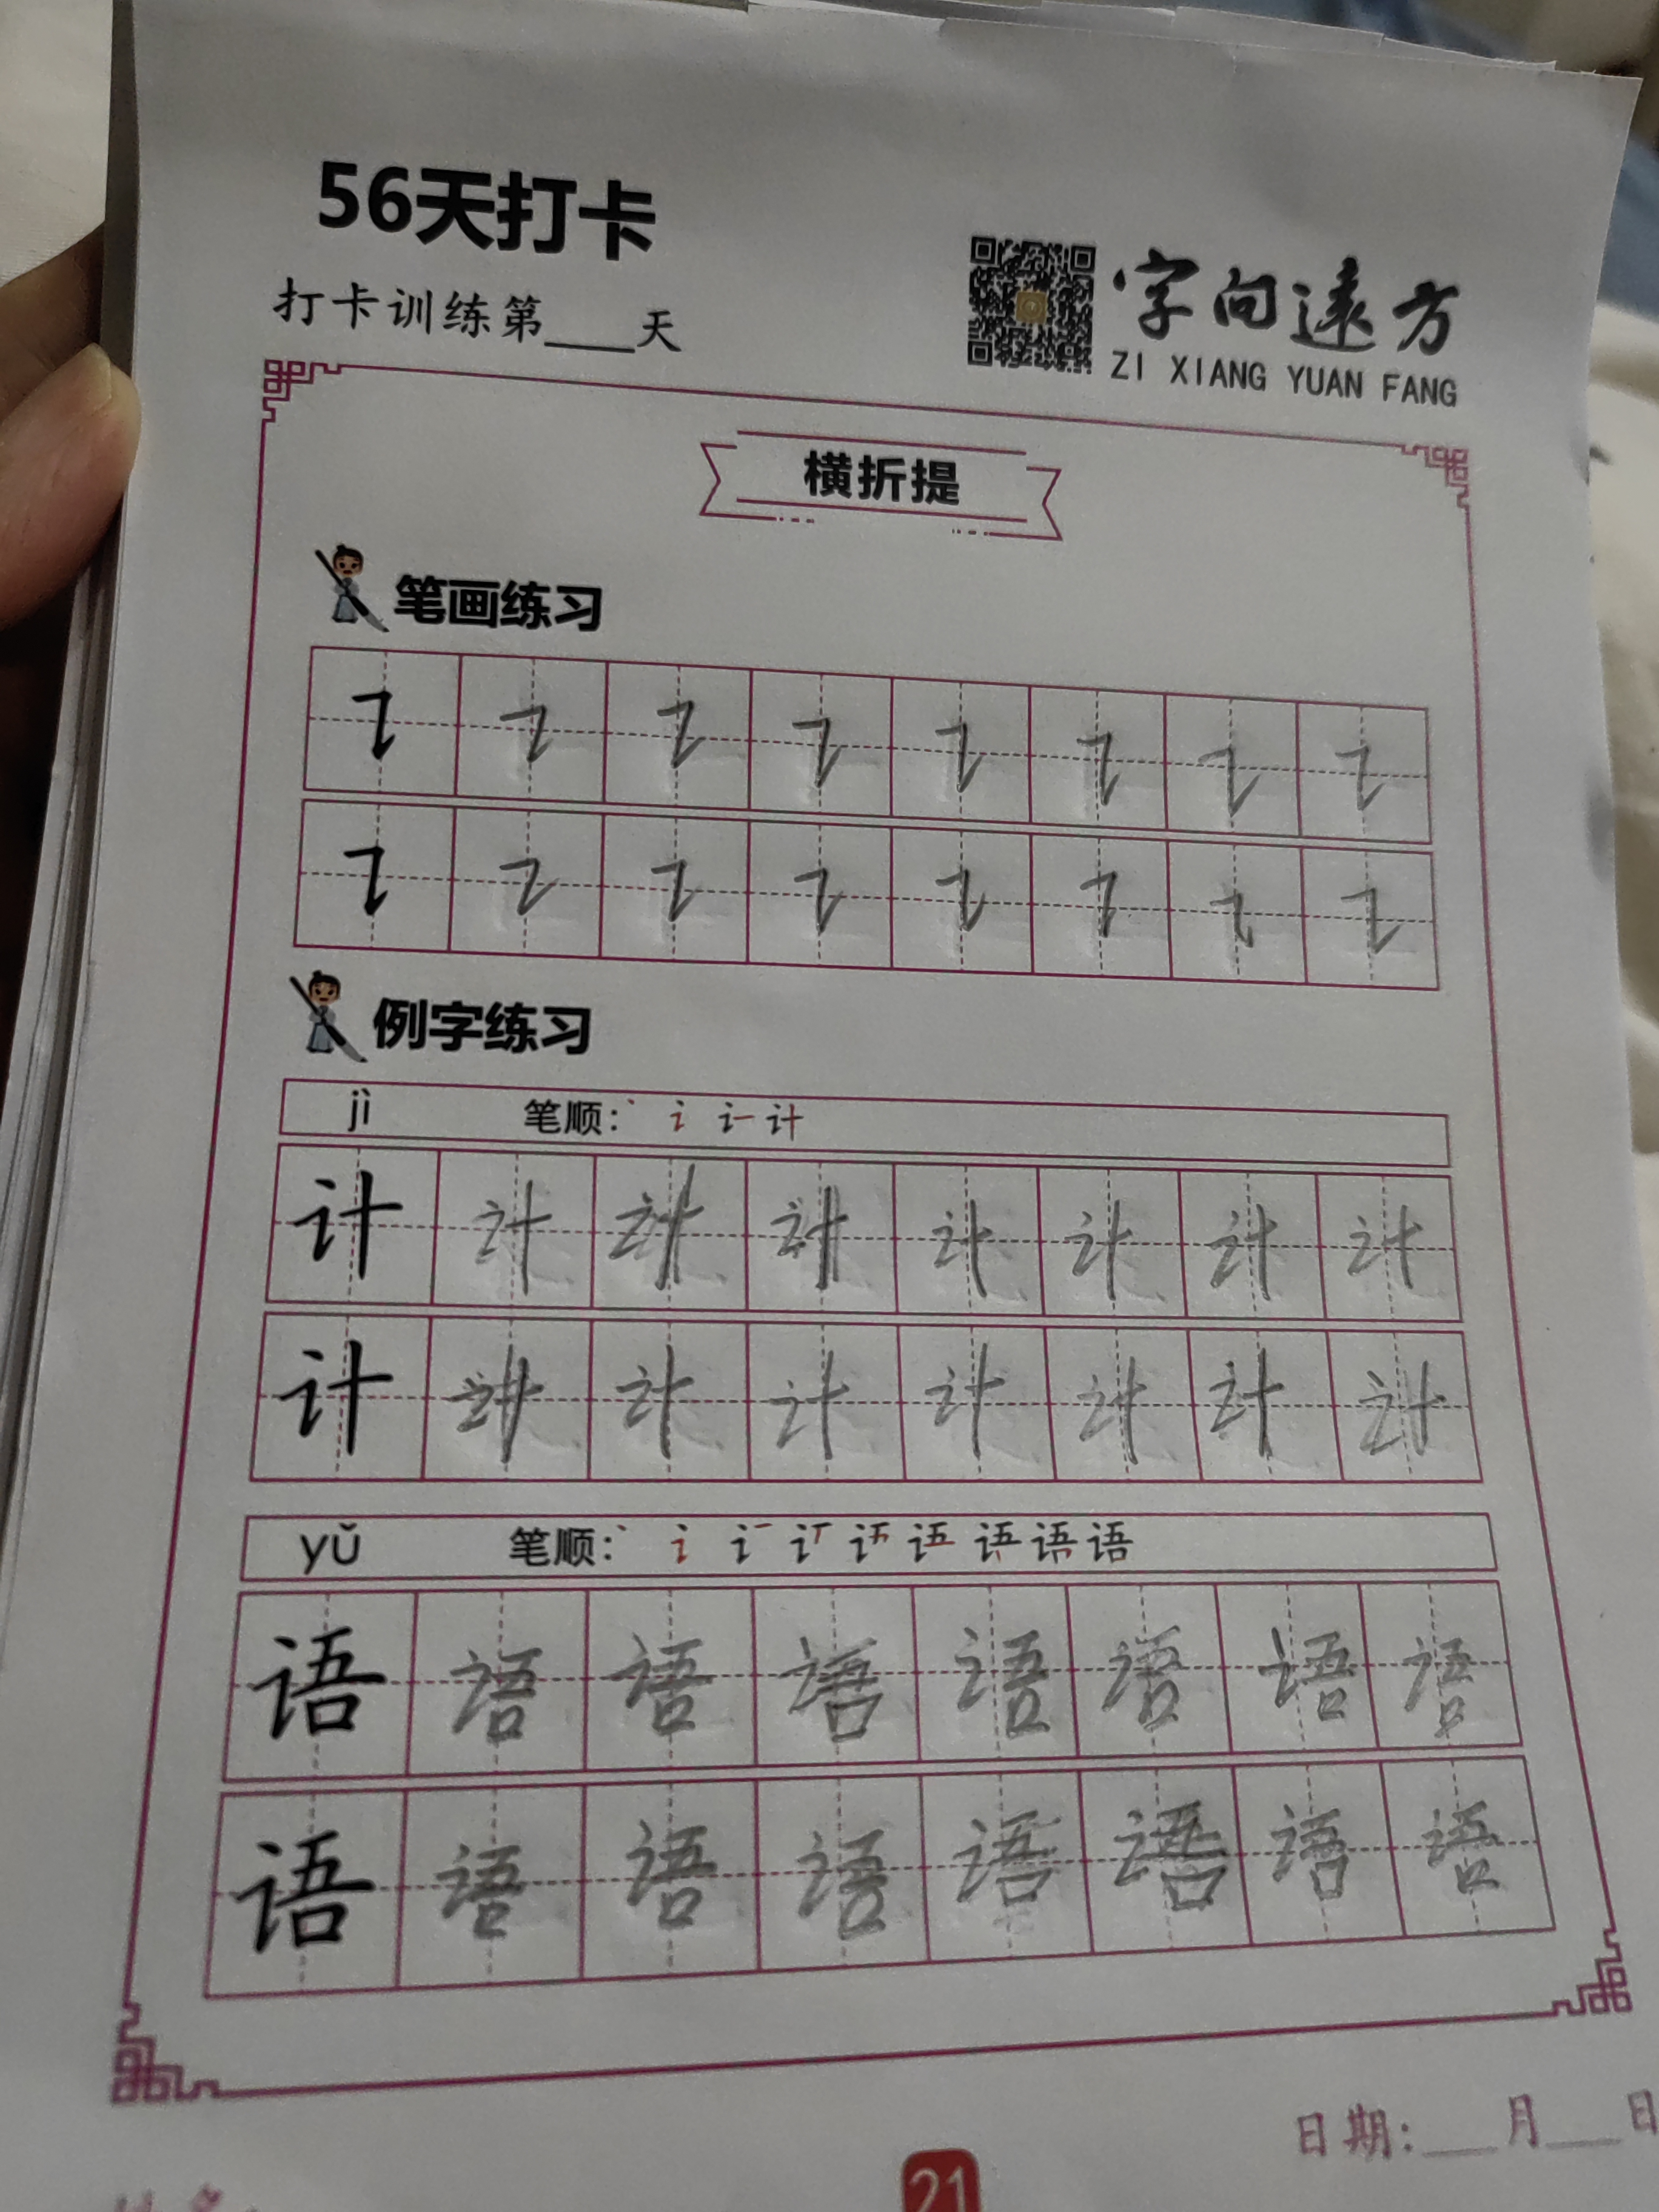 56天打卡
打卡训练第____天
字向遠方
ZI XIANG YUAN FANG
横折提
笔画练习
例字练习
jì 笔顺：
计 计 计 计 计 计 计 计
计 计 计 计 计 计 计 计
yǔ 笔顺： 语
语 语 语 语 语 语 语 语
语 语 语 语 语 语 语 语
日期:___月___日
21